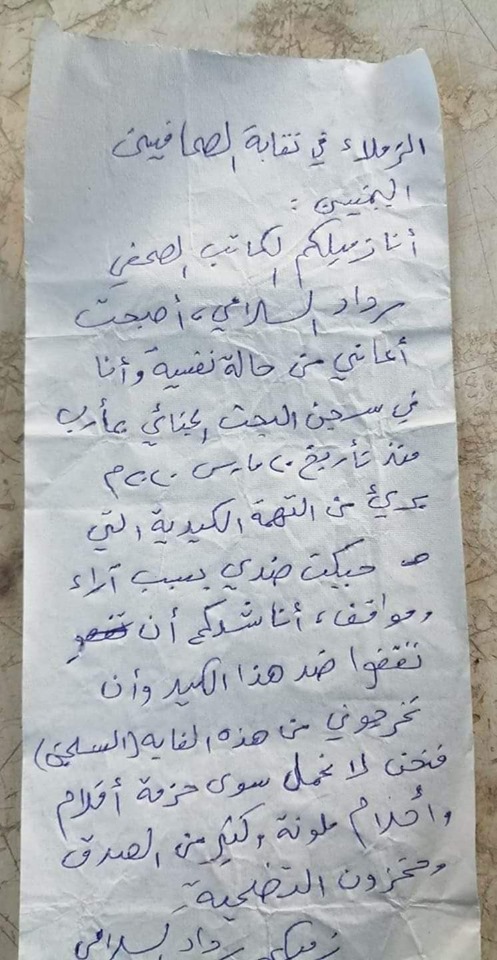 الزملاء في نقابة الصحافيين
اليمنيين :
أنا زميلكم الكاتب الصحفي
رداد السلامي، أصبحت
أعاني من حالة نفسية وأنا
في سجن البحث الجنائي بمأرب
منذ تأريخ ٢٠ مارس ٢٠٢٠م
بريئ من التهمة الكيدية التي
حيكت ضدي بسبب آراء
ومواقف، أناشدكم أن
تقفوا ضد هذا الكيد وأن
تخرجوني من هذه الغابه (السجن)
فنحن لا نحمل سوى حزمة أقلام
وأحلام ملونة وكثير من الصدق
ومخزون التضحية.
زميلكم رداد السلامي